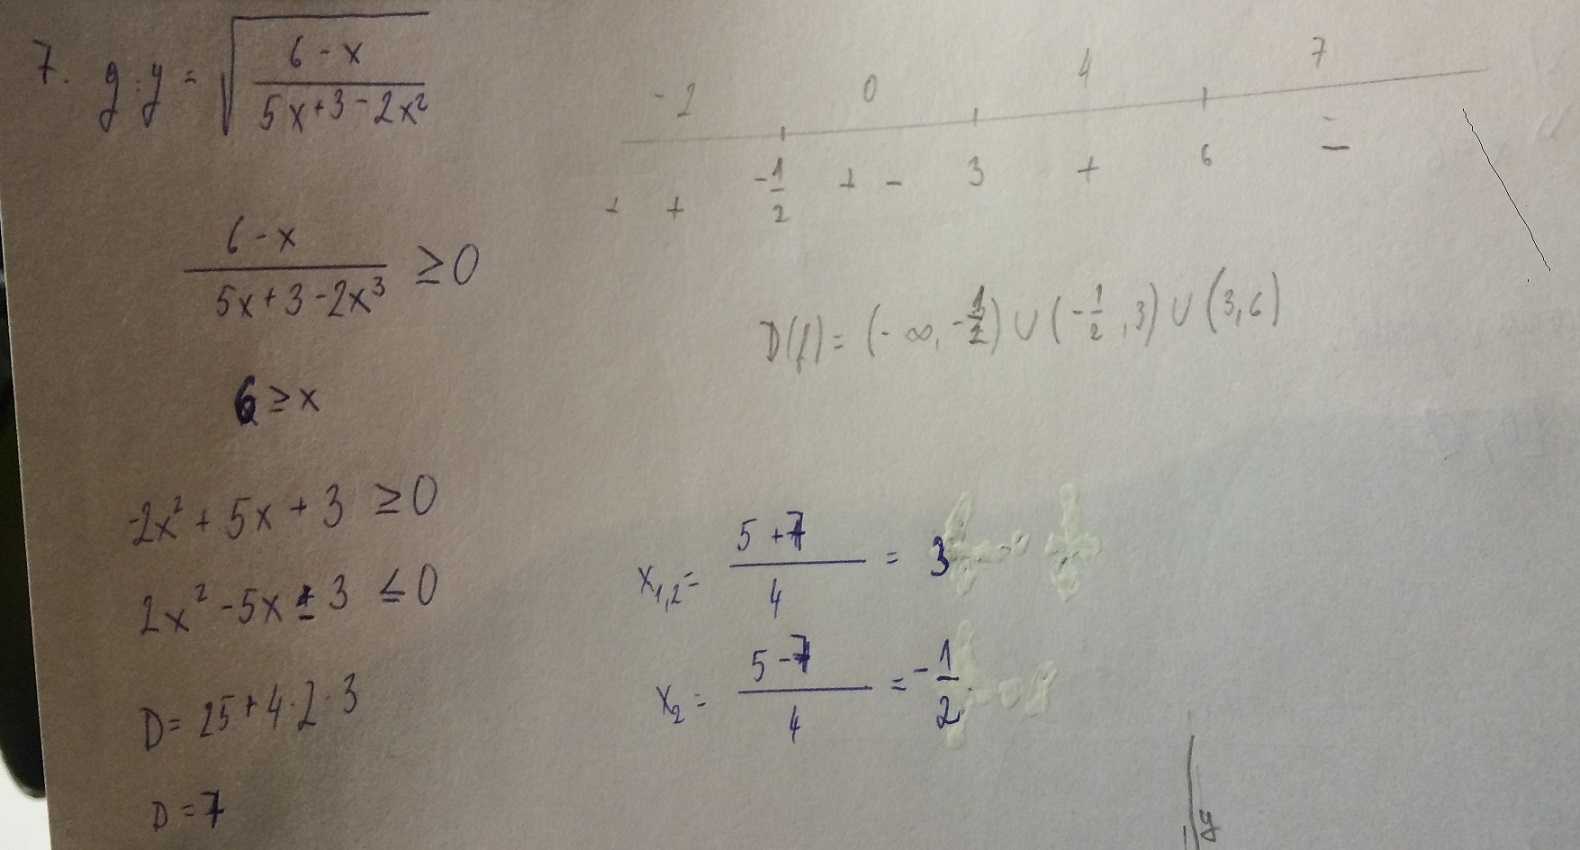 7. g: y = √((6-x)/(5x+3-2x²))
-2 0 4 7
-1/2 3 6
+ + + - + =
(6-x)/(5x+3-2x³) ≥ 0
D(f) = (-∞, -1/2) ∪ (-1/2, 3) ∪ (3, 6)
6 ≥ x
-2x² + 5x + 3 ≥ 0
2x² - 5x ± 3 ≤ 0
x₁,₂ = (5+7)/4 = 3
D = 25 + 4·2·3
x₂ = (5-7)/4 = -1/2
D = 7